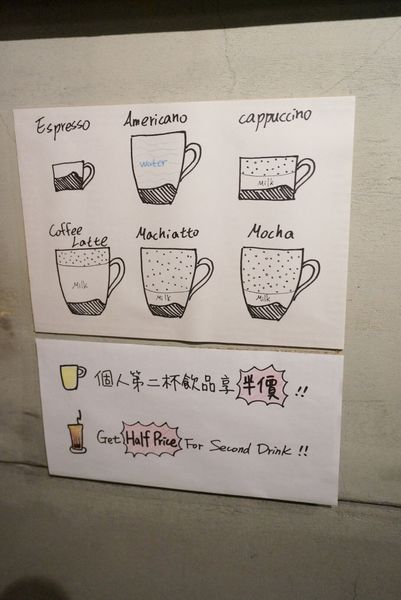 Espresso
Americano
cappuccino
water
Milk
Coffee
Latte
Machiatto
Mocha
Milk
Milk
Milk
個人第二杯飲品享半價!!
Get Half Price For Second Drink!!